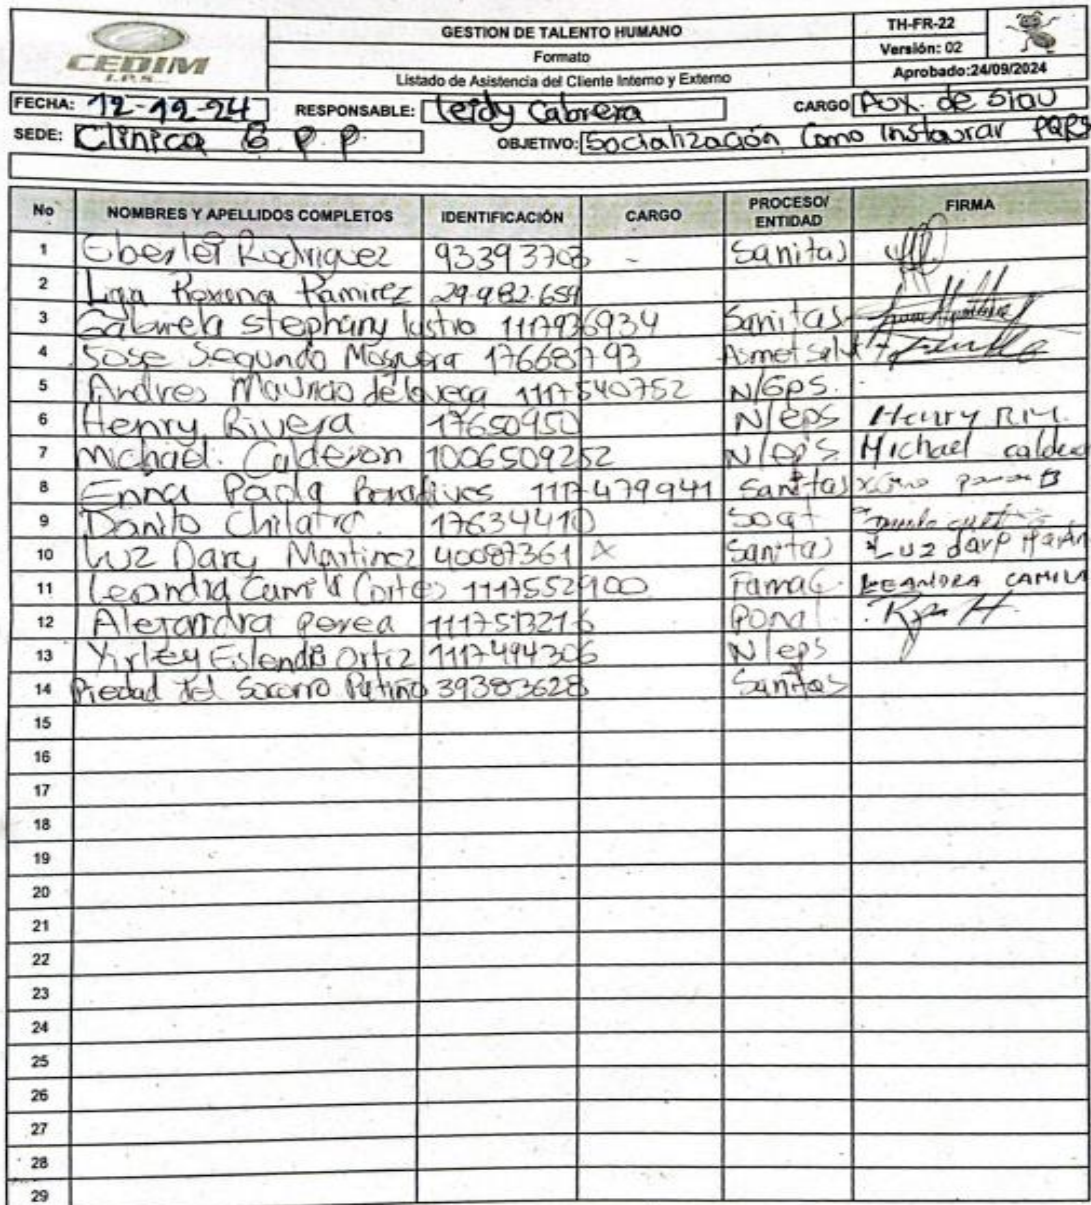 CEDIM
I.P.S.
GESTION DE TALENTO HUMANO
Formato
Listado de Asistencia del Cliente Interno y Externo
TH-FR-22
Versión: 02
Aprobado:24/09/2024
FECHA: 12-12-24 RESPONSABLE: Leidy Cabrera CARGO Aux. de Siau
SEDE: Clinica B P.P. OBJETIVO: Socialización Como instaurar PQRS
No NOMBRES Y APELLIDOS COMPLETOS IDENTIFICACIÓN CARGO PROCESO/ENTIDAD FIRMA
1 Rodriguez - Sanitas
2 Ramirez 29.982.659
3 Gabriela Stephany 1117936934 Sanitas
4 Jose Segundo Mosquera 17668793 Asmet Salud
5 Andres Mauricio 1117540752 N/Eps.
6 Henry Rivera 17650950 N/eps Henry
7 Michael. Calderon 1006509252 N/eps Michael
8 Enna Paola 1117479941 Sanitas
9 Danilo 17634410 Soat
10 Luz Dary Martinez 40087361 X Sanitas Luz dary
11 Leandra Camila Cortes 1117552900 Famac LEANDRA CAMILA
12 Alejandra Perea 1117513216 Ponal
13 Yirley Eslendi Ortiz 1117494306 N/eps
14 Piedad del Socorro Patiño 39383628 Sanitas
15
16
17
18
19
20
21
22
23
24
25
26
27
28
29